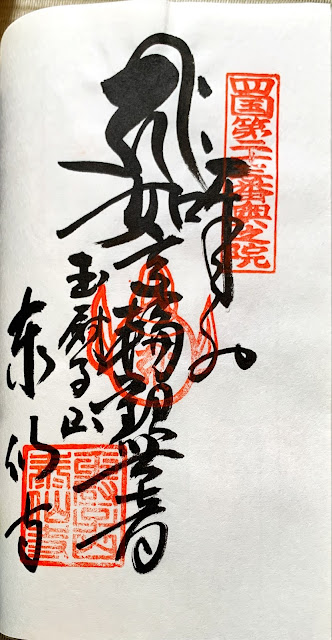 四国第二十三番奥之院
奉拝
如意輪観世音
玉厨子山
泰仙寺